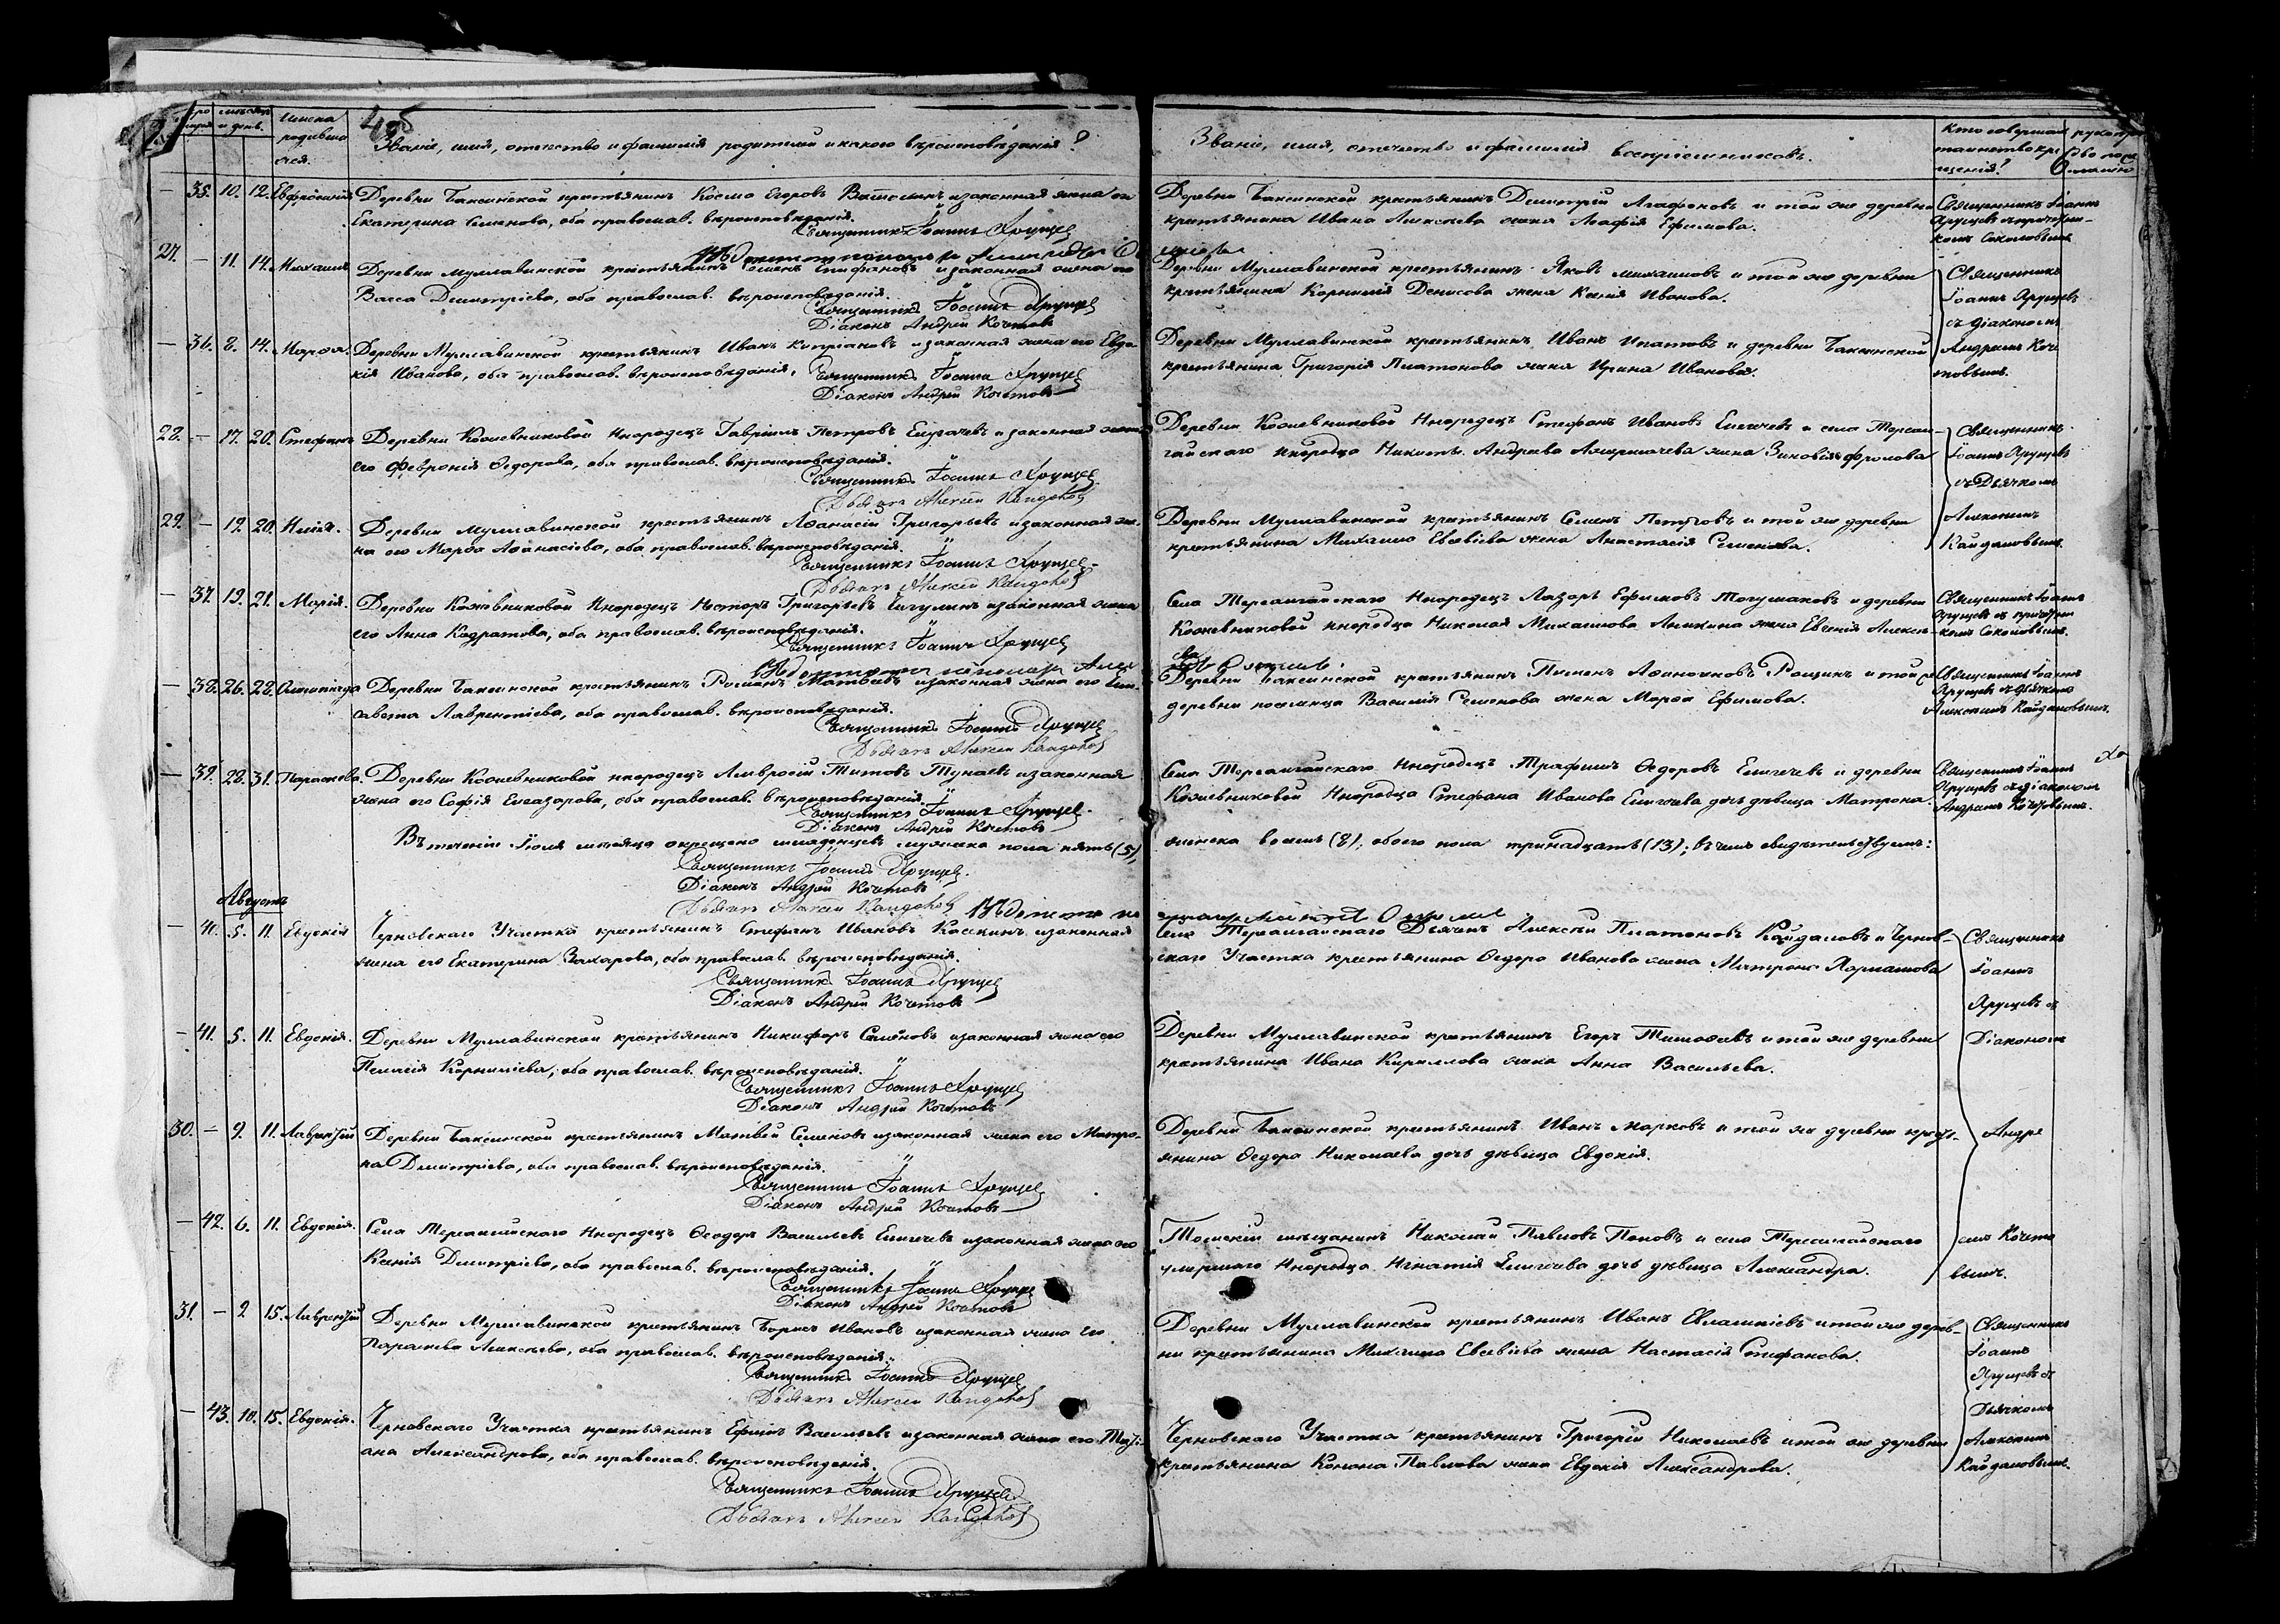 Имена родившихся.
Званіе, имя, отчество и фамилія родителей и какого вѣроисповѣданія?
Званіе, имя, отчество и фамилія воспріемниковъ.
Кто совершалъ таинство крещенія?
— 35. 10. 12. Евфросинія
Деревни Баксинской крестьянинъ Косма Егоровъ и законная жена его
Екатерина Семенова, оба православ. вѣроисповѣданія.
Священникъ Іоаннъ Хрущевъ
Деревни Баксинской крестьянинъ Димитрій Агафоновъ и той же деревни
крестьянина Ивана Алексѣева жена Агафія Ефимова.
Священникъ Іоаннъ
27. — 11. 14. Михаилъ
Деревни Муллавинской крестьянинъ Семенъ Епифановъ и законная жена его
Васса Димитріева, оба православ. вѣроисповѣданія.
Священникъ Іоаннъ Хрущевъ
Діаконъ Андрей Кочетовъ
Деревни Муллавинской крестьянинъ Яковъ Михаиловъ и той же деревни
крестьянина Корнилія Денисова жена Ксенія Иванова.
Священникъ
Іоаннъ Хрущевъ
съ діакономъ
— 36. 8. 14. Марѳа.
Деревни Муллавинской крестьянинъ Иванъ Кипріановъ и законная жена его Евдо-
кія Иванова, оба православ. вѣроисповѣданія.
Священникъ Іоаннъ Хрущевъ
Діаконъ Андрей Кочетовъ
Деревни Муллавинской крестьянинъ Иванъ Ипатовъ и деревни Баксинской
крестьянина Григорія Платонова жена Ирина Иванова.
Андреемъ Коче-
товымъ.
28. — 17. 20. Стефанъ
Деревни Кожевниковой Инородецъ Гавріилъ Петровъ и законная жена
его Февронія Ѳедорова, оба православ. вѣроисповѣданія.
Священникъ Іоаннъ Хрущевъ
Дьячекъ Алексей Кайдаловъ
Деревни Кожевниковой Инородецъ Стефанъ Ивановъ Епигечевъ и села Терсал-
гайскаго инородца Андреева жена Зиновія Фролова
Священникъ
Іоаннъ Хрущевъ
съ Дьячкомъ
29. — 19. 20. Илія.
Деревни Муллавинской крестьянинъ Аѳанасій Григорьевъ и законная же-
на его Марѳа Аѳанасіева, оба православ. вѣроисповѣданія.
Священникъ Іоаннъ Хрущевъ
Дьячекъ Алексей Кайдаловъ
Деревни Муллавинской крестьянинъ Семенъ Петровъ и той же деревни
крестьянина Михаила Евсевіева жена Анастасія Семенова.
Алексіемъ
Кайдаловымъ.
— 37. 19. 21. Марія.
Деревни Кожевниковой Инородецъ Несторъ Григорьевъ и законная жена
его Анна Кодратова, оба православ. вѣроисповѣданія.
Священникъ Іоаннъ Хрущевъ
Села Терсалгайскаго Инородецъ Лазарь Ефимовъ Тогушаковъ и деревни
Кожевниковой инородца Николая Михаилова Аникина жена Евгенія Алексѣ-
Священникъ Іоаннъ
Хрущевъ съ причетни-
комъ Соколовымъ.
— 38. 26. 28. Олимпіада
Деревни Баксинской крестьянинъ Романъ Матвеевъ и законная жена его Ели-
савета Лаврентіева, оба православ. вѣроисповѣданія.
Священникъ Іоаннъ Хрущевъ
Дьячекъ Алексей Кайдаловъ
Деревни Баксинской крестьянинъ Пименъ Рощинъ и той же
деревни поселенца Василія Семенова жена Марѳа Ефимова.
Священникъ Іоаннъ
Хрущевъ съ дьячкомъ
Алексіемъ Кайдаловымъ.
— 39. 28. 31. Параскева.
Деревни Кожевниковой инородецъ Амвросій Титовъ Тунаевъ и законная
жена его Софія Елеазарова, оба православ. вѣроисповѣданія.
Священникъ Іоаннъ Хрущевъ
Діаконъ Андрей Кочетовъ
Села Терсалгайскаго Инородецъ Трафимъ Ѳедоровъ Епигечевъ и деревни
Кожевниковой Инородца Стефана Иванова Епигечева дочь дѣвица Матрона.
Священникъ Іоаннъ
Хрущевъ съ діакономъ
Андреемъ Кочетовымъ.
Въ теченіи Іюля мѣсяца окрещено младенцевъ мужеска пола пять (5),
женска восемь (8), обоего пола тринадцать (13); въ чемъ свидѣтельствуемъ:
Священникъ Іоаннъ Хрущевъ
Діаконъ Андрей Кочетовъ
Дьячекъ Алексей Кайдаловъ
Августъ
— 40. 5. 11. Евдокія
Черновскаго Участка крестьянинъ Стефанъ Ивановъ и законная
жена его Екатерина Захарова, оба православ. вѣроисповѣданія.
Священникъ Іоаннъ Хрущевъ
Діаконъ Андрей Кочетовъ
Села Терсалгайскаго Дьячекъ Алексѣй Платоновъ Кайдаловъ и Чернов-
скаго Участка крестьянина Ѳедора Иванова жена Матрона
Священникъ
Іоаннъ
Хрущевъ съ
— 41. 5. 11. Евдокія.
Деревни Муллавинской крестьянинъ Никифоръ Семеновъ и законная жена его
Пелагія Корниліева, оба православ. вѣроисповѣданія.
Священникъ Іоаннъ Хрущевъ
Діаконъ Андрей Кочетовъ
Деревни Муллавинской крестьянинъ Егоръ Тимоѳеевъ и той же деревни
крестьянина Ивана Кириллова жена Анна Васильева.
Діакономъ
30. — 9. 11. Лаврентій
Деревни Баксинской крестьянинъ Матвей Семеновъ и законная жена его Матро-
на Димитріева, оба православ. вѣроисповѣданія.
Священникъ Іоаннъ Хрущевъ
Діаконъ Андрей Кочетовъ
Деревни Баксинской крестьянинъ Иванъ Марковъ и той же деревни кресть-
янина Ѳедора Николаева дочь дѣвица Евдокія.
Андре
— 42. 6. 11. Евдокія.
Села Терсалгайскаго Инородецъ Ѳеодоръ Васильевъ Епигечевъ и законная жена его
Ксенія Димитріева, оба православ. вѣроисповѣданія.
Священникъ Іоаннъ Хрущевъ
Діаконъ Андрей Кочетовъ
Томскій мѣщанинъ Николай Павловъ Поповъ и села Терсалгайскаго
умершаго Инородца Игнатія Епигечева дочь дѣвица Александра.
емъ Кочето
вымъ.
31. — 9 15. Лаврентій
Деревни Муллавинской крестьянинъ Борисъ Ивановъ и законная жена его
Параскева Алексѣева, оба православ. вѣроисповѣданія.
Священникъ Іоаннъ Хрущевъ
Дьячекъ Алексей Кайдаловъ
Деревни Муллавинской крестьянинъ Иванъ Евлампіевъ и той же дерев-
ни крестьянина Михаила Евсевіева жена Настасія Стефанова.
Священникъ
Іоаннъ
Хрущевъ съ
Дьячкомъ
— 43. 10. 15. Евдокія.
Черновскаго Участка крестьянинъ Ефимъ Васильевъ и законная жена его Тать-
яна Александрова, оба православ. вѣроисповѣданія.
Священникъ Іоаннъ Хрущевъ
Дьячекъ Алексей Кайдаловъ
Черновскаго Участка крестьянинъ Григорій Николаевъ и той же деревни
крестьянина Конона Павлова жена Евдокія Александрова.
Алексіемъ
Кайдаловымъ.